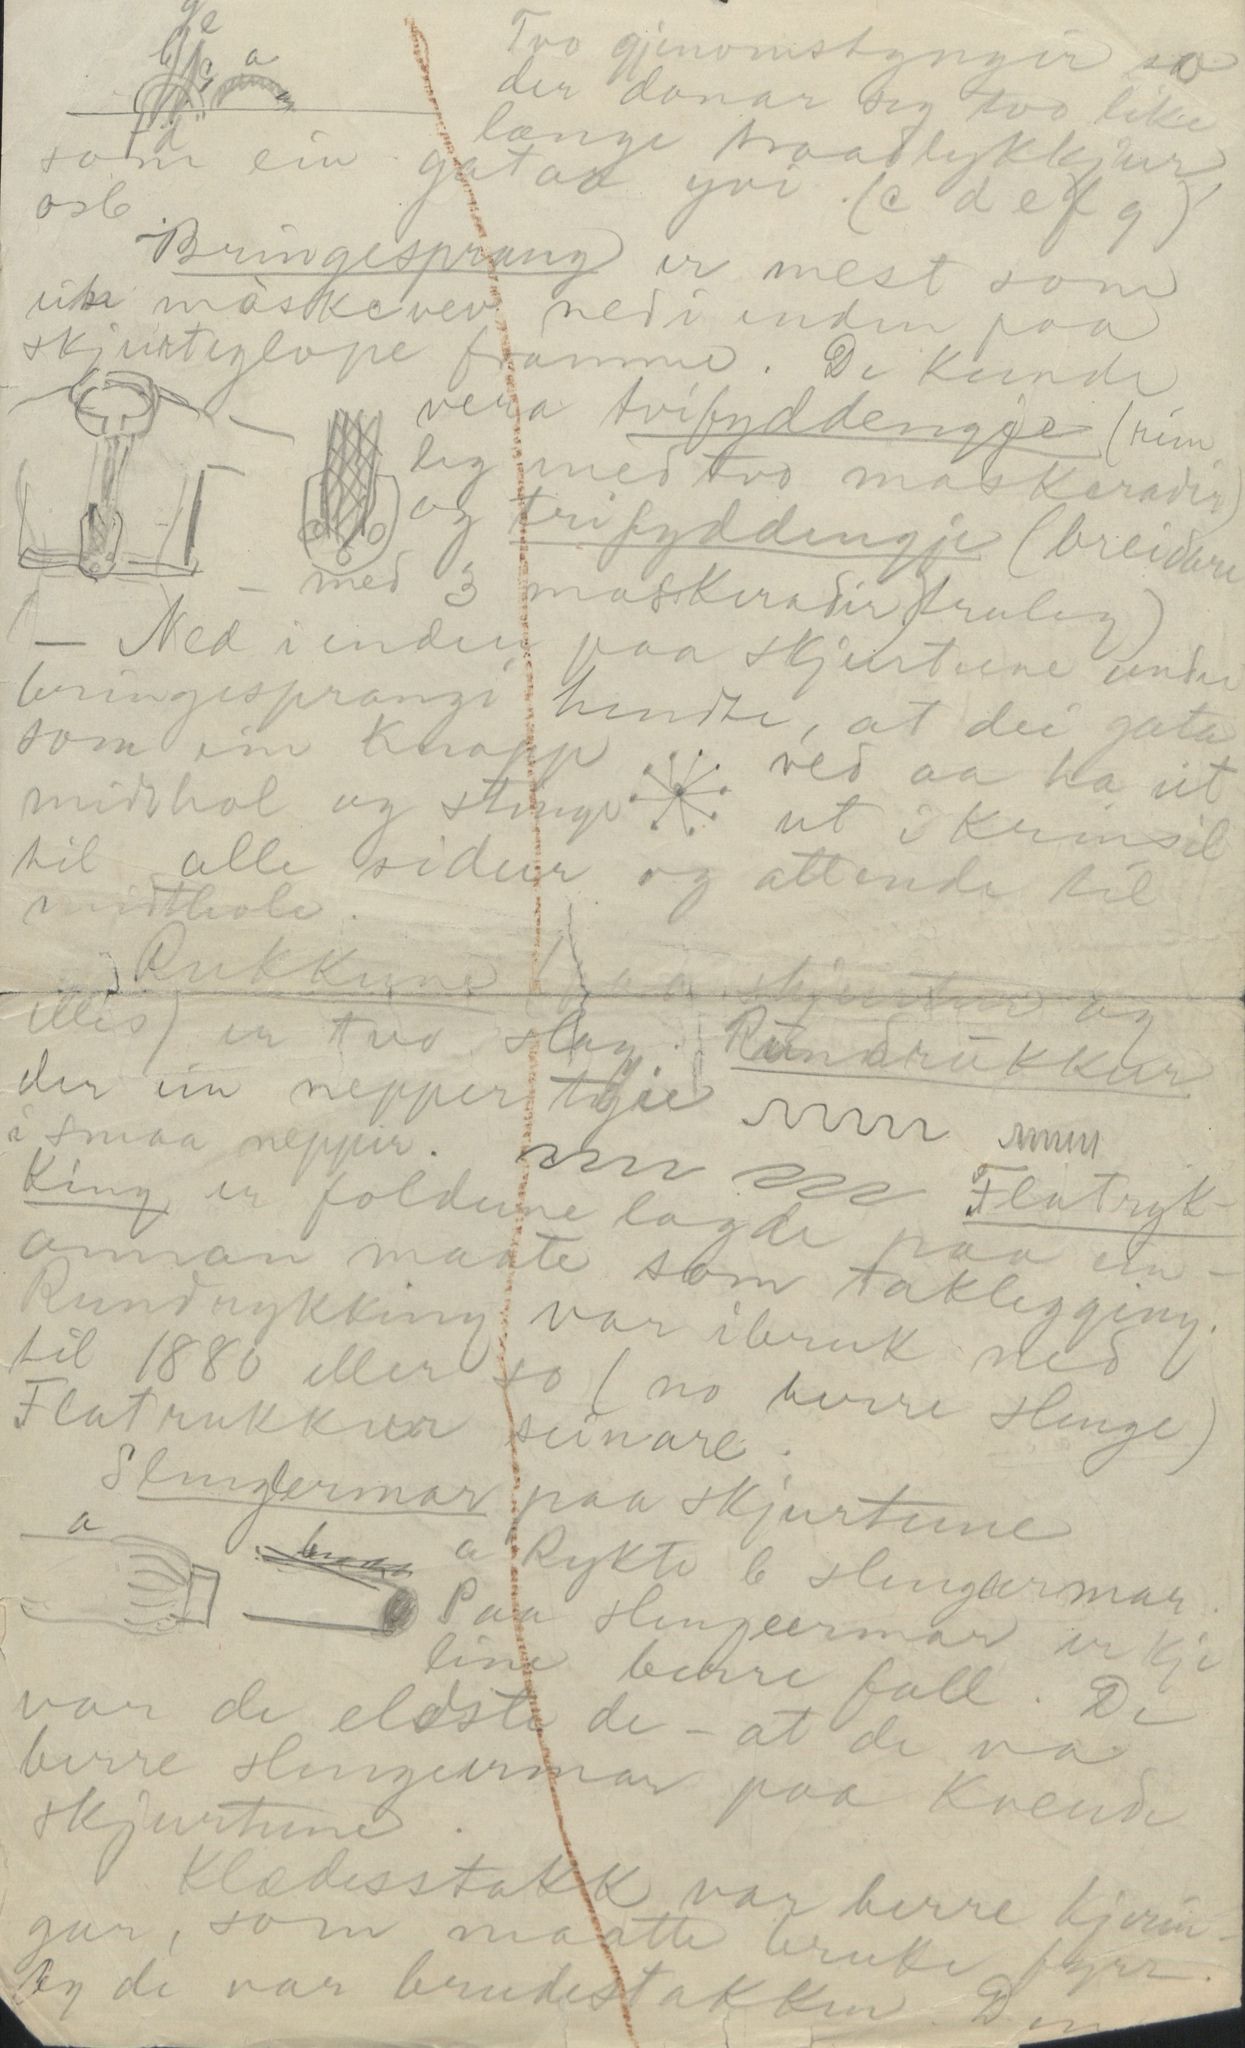 Tvo gjenomstyngir so
der danar seg tvo like
lange traadlykkjur
som ein gataa yvi (c d e f g)
osb.
Bringesprang er mest som
maskevev nedi enden paa
skjurteglope framme. De kunde
vera tvifyddengje (rim
leg med tvo maskeradir)
og trifyddengje (breidare
– med 3 maskeradir truleg)
– Ned i enden paa skjurtune under
bringesprangi hendte, at dei gata
som ein knapp ved aa ha eit
midthol og stinge ut i krinsel
til alle sidur og attende til
midthole.
Rukkune (paa skjurtur og
elles) er tvo slag. Rundrukkur
der ein nepper tyie
i smaa neppir.
Flatryk-
king er foldune lagde paa ein
annan maate som taklegging.
Rundrykking var ibruk ned
til 1880 eller so (no berre slenge)
Flatrukkur seinare.
Slengermar paa skjurtune
a
b
a Rykte b slengermar.
Paa slengeermar er kje
line berre fall. De
var de eldste de – at de va
berre slengeermar paa kvende
skjurtune.
Klædesstakk var berre kjerin-
gar, som maatte bruke fyrr.
Og de var brudestakken. Den